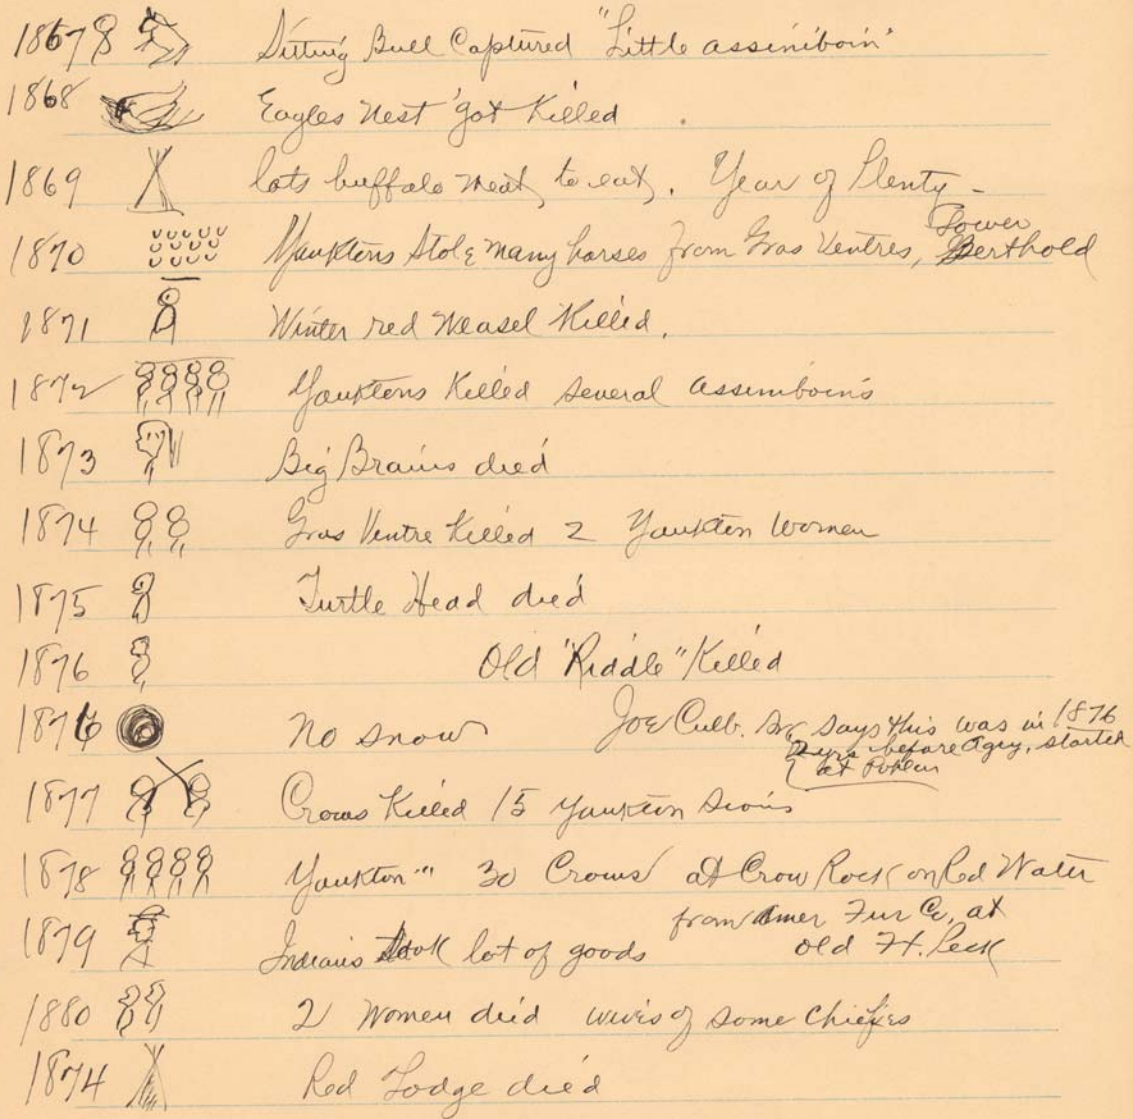 1867 Sitting Bull Captured "Little assiniboin"
1868 Eagles Nest got Killed
1869 lots buffalo meat to eat. Year of Plenty -
1870 Yanktons Stole many horses from Gras Ventres, Lower Berthold
1871 Winter red Weasel Killed.
1872 Yanktons Killed several assiniboins
1873 Big Brains died
1874 Gros Ventre Killed 2 Yankton women
1875 Turtle Head died
1876 Old "Riddle" Killed
1876 No snow Joe Culb. Sr says this was in 1876
2 yrs before agcy, started
at Poplar
1877 Crows Killed 15 Yankton Sioux
1878 Yankton " 30 Crows at Crow Rock on Red Water
1879 Indians took lot of goods from Amer Fur Co. at
old Ft. Peck
1880 2 Women died wives of some Chiefs
1874 Red Lodge died